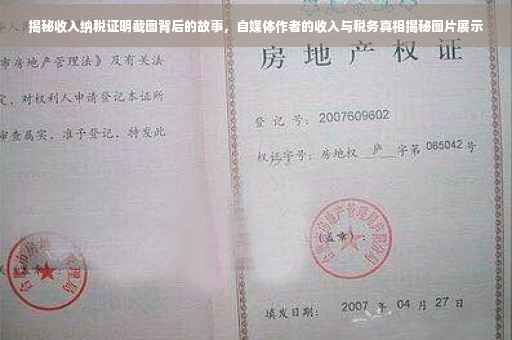 揭秘收入纳税证明截图背后的故事，自媒体作者的收入与税务真相揭秘图片展示
市房地产管理法》及有关法
定，对权利人申请登记本证所
审查属实，准予登记，特发此
房地产权证
登记号：2007609602
权证字号：房地权 庐 字第 065042 号
(盖章)：
填发日期： 2007 年 04 月 27 日